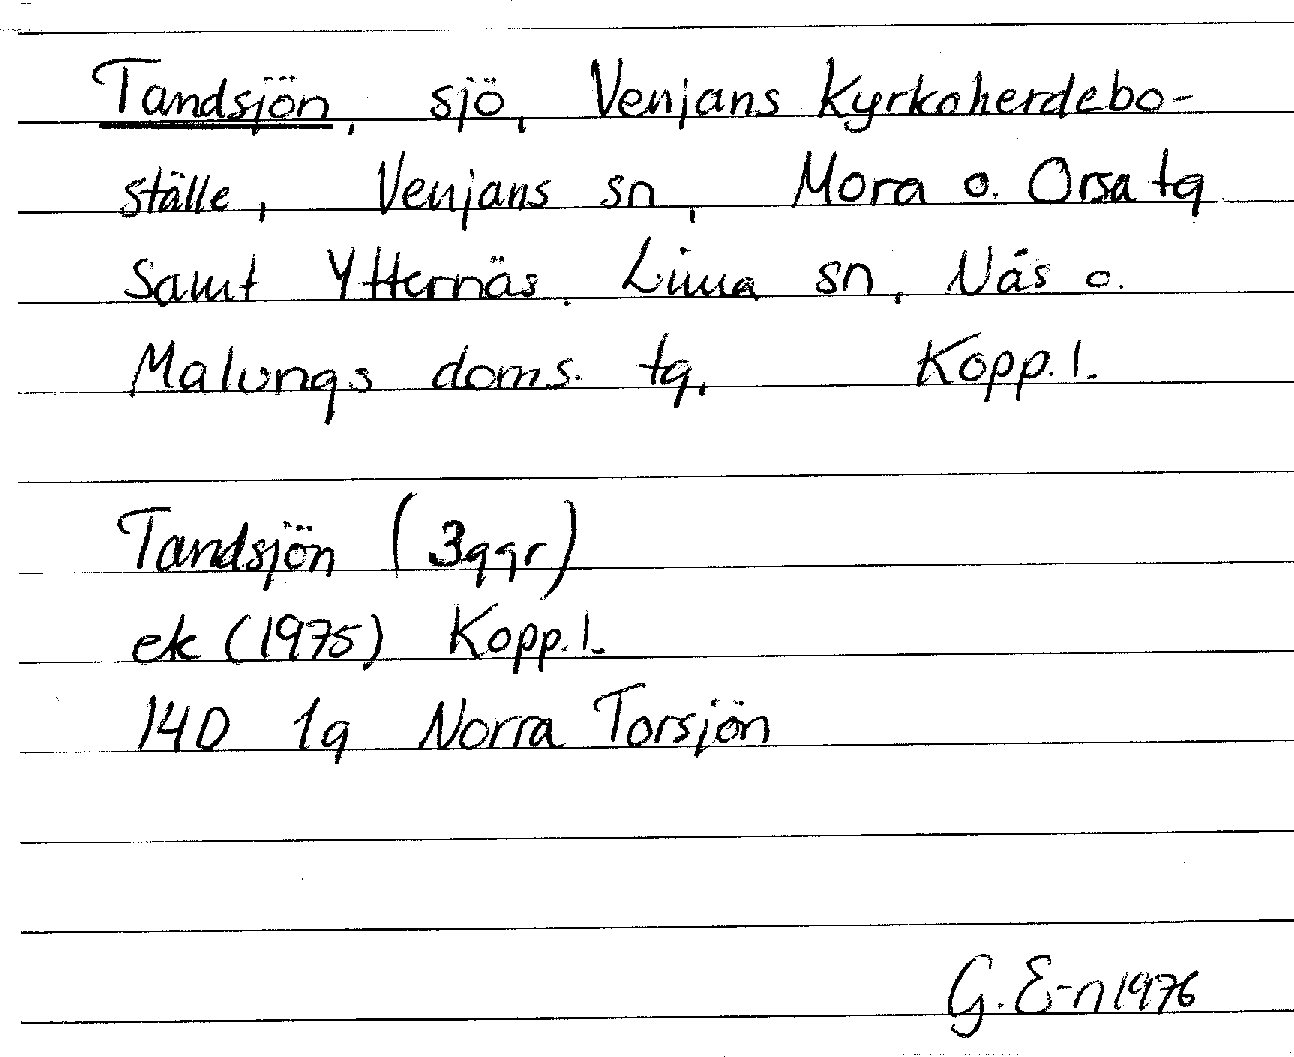 Tandsjön, sjö, Venjans Kyrkoherdebo-
ställe, Venjans sn, Mora o. Orsa tg
Samt Ytternäs, Lima sn, Nås o.
Malungs doms. tg, Kopp.l.
Tandsjön (3ggr)
ek (1975) Kopp.l.
14D 1g Norra Torsjön
G.E-n 1976